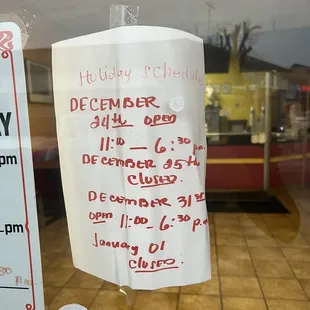 Holiday Schedule
DECEMBER
24th OPEN
11:00 — 6:30 p.m.
DECEMBER 25th
CLOSED.
DECEMBER 31st
OPEN 11:00 - 6:30 p.m
January 01
CLOSED.
AY
pm
pm